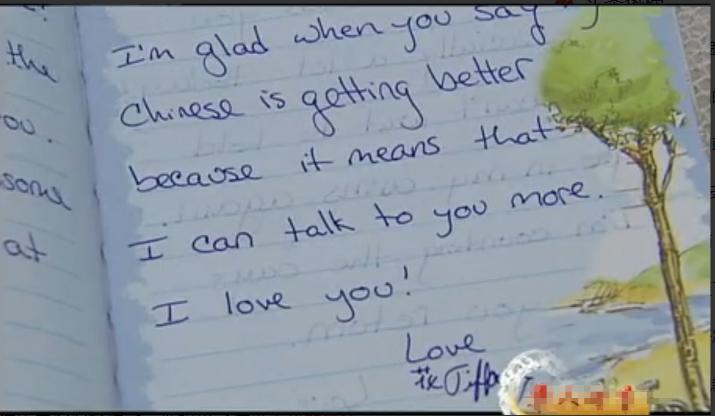 the
ou.
some
at
I'm glad when you say
Chinese is getting better
because it means that
I can talk to you more.
I love you!
Love